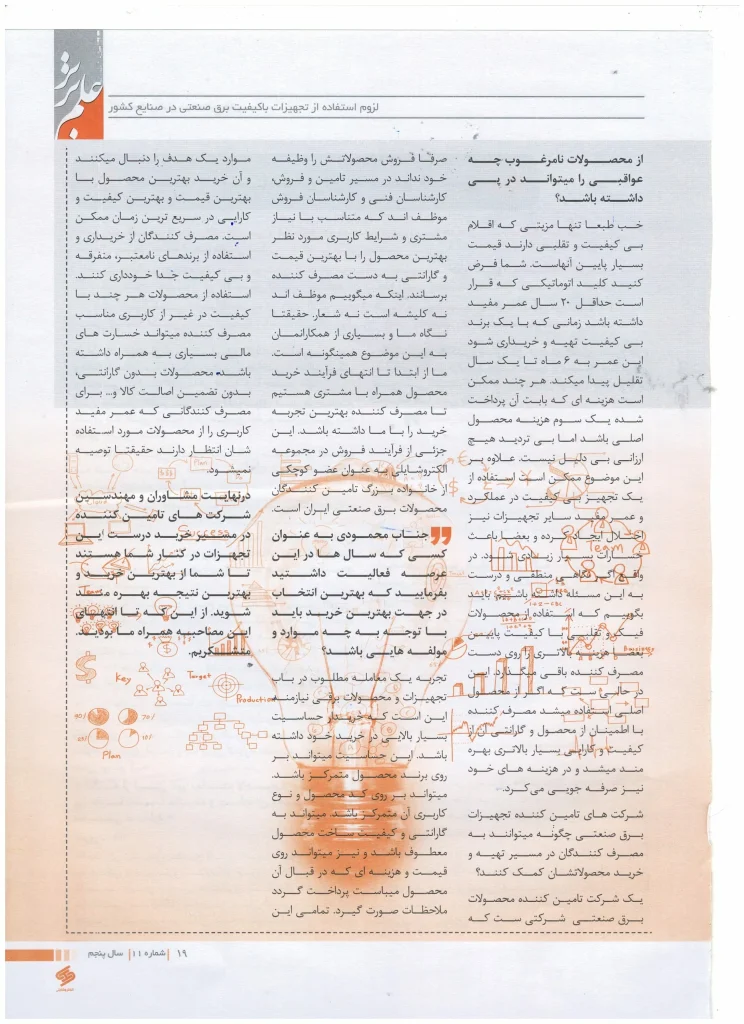 علم برتر
لزوم استفاده از تجهیزات باکیفیت برق صنعتی در صنایع کشور
از محصولات نامرغوب چه
عواقبی را میتواند در پی
داشته باشد؟
خب طبعا تنها مزیتی که اقلام
بی کیفیت و تقلبی دارند قیمت
بسیار پایین آنهاست. شما فرض
کنید کلید اتوماتیکی که قرار
است حداقل ۲۰ سال عمر مفید
داشته باشد زمانی که با یک برند
بی کیفیت تهیه و خریداری شود
این عمر به ۶ ماه تا یک سال
تقلیل پیدا میکند. هر چند ممکن
است هزینه ای که بابت آن پرداخت
شده یک سوم هزینه محصول
اصلی باشد اما بی تردید هیچ
ارزانی بی دلیل نیست. علاوه بر
این موضوع ممکن است استفاده از
یک تجهیز بی کیفیت در عملکرد
و عمر مفید سایر تجهیزات نیز
اختلال ایجاد کرده و بعضا باعث
خسارات بسیار زیادی شود. در
واقع اگر نگاهی منطقی و درست
به این مسئله داشته باشیم باید
بگوییم که استفاده از محصولات
فیک و تقلبی با کیفیت پایین
بعضا هزینه بالاتری را روی دست
مصرف کننده باقی میگذارد. این
در حالی ست که اگر از محصول
اصلی استفاده میشد مصرف کننده
با اطمینان از محصول و گارانتی آن از
کیفیت و کارایی بسیار بالاتری بهره
مند میشد و در هزینه های خود
نیز صرفه جویی می‌کرد.
شرکت های تامین کننده تجهیزات
برق صنعتی چگونه میتوانند به
مصرف کنندگان در مسیر تهیه و
خرید محصولاتشان کمک کنند؟
یک شرکت تامین کننده محصولات
برق صنعتی شرکتی ست که
صرفا فروش محصولاتش را وظیفه
خود نداند در مسیر تامین و فروش،
کارشناسان فنی و کارشناسان فروش
موظف اند که متناسب با نیاز
مشتری و شرایط کاربری مورد نظر
بهترین محصول را با بهترین قیمت
و گارانتی به دست مصرف کننده
برسانند. اینکه میگوییم موظف اند
نه کلیشه است نه شعار. حقیقتا
نگاه ما و بسیاری از همکارانمان
به این موضوع همینگونه است.
ما از ابتدا تا انتهای فرآیند خرید
محصول همراه با مشتری هستیم
تا مصرف کننده بهترین تجربه
خرید را با ما داشته باشد. این
جزئی از فرآیند فروش در مجموعه
الکتروشایلی به عنوان عضو کوچکی
از خانواده بزرگ تامین کنندگان
محصولات برق صنعتی ایران است.
جناب محمودی به عنوان
کسی که سال ها در این
عرصه فعالیت داشتید
بفرمایید که بهترین انتخاب
در جهت بهترین خرید باید
با توجه به چه موارد و
مولفه هایی باشد؟
تجربه یک معامله مطلوب در باب
تجهیزات و محصولات برقی نیازمند
این است که خریدار حساسیت
بسیار بالایی در خرید خود داشته
باشد. این حساسیت میتواند بر
روی برند محصول متمرکز باشد.
میتواند بر روی کد محصول و نوع
کاربری آن متمرکز باشد. میتواند به
گارانتی و کیفیت ساخت محصول
معطوف باشد و نیز میتواند روی
قیمت و هزینه ای که در قبال آن
محصول میباست پرداخت گردد
ملاحظات صورت گیرد. تمامی این
موارد یک هدف را دنبال میکنند
و آن خرید بهترین محصول با
بهترین قیمت و بهترین کیفیت و
کارایی در سریع ترین زمان ممکن
است. مصرف کنندگان از خریداری و
استفاده از برندهای نامعتبر، متفرقه
و بی کیفیت جدا خودداری کنند.
استفاده از محصولات هر چند با
کیفیت در غیر از کاربری مناسب
مصرف کننده میتواند خسارت های
مالی بسیاری به همراه داشته
باشد. محصولات بدون گارانتی،
بدون تضمین اصالت کالا و... برای
مصرف کنندگانی که عمر مفید
کاربری را از محصولات مورد استفاده
شان انتظار دارند حقیقتا توصیه
نمیشود.
درنهایت مشاوران و مهندسین
شرکت های تامین کننده
در مسیر خرید درست این
تجهیزات در کنار شما هستند
تا شما از بهترین خرید و
بهترین نتیجه بهره مند
شوید. از این که تا انتهای
این مصاحبه همراه ما بودید.
متشکریم.
Team
Key
Target
Production
Plan
۱۹ | شماره ۱۱ | سال پنجم